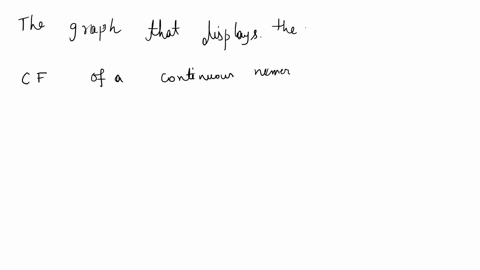 The graph that displays. the
CF of a continuous numer